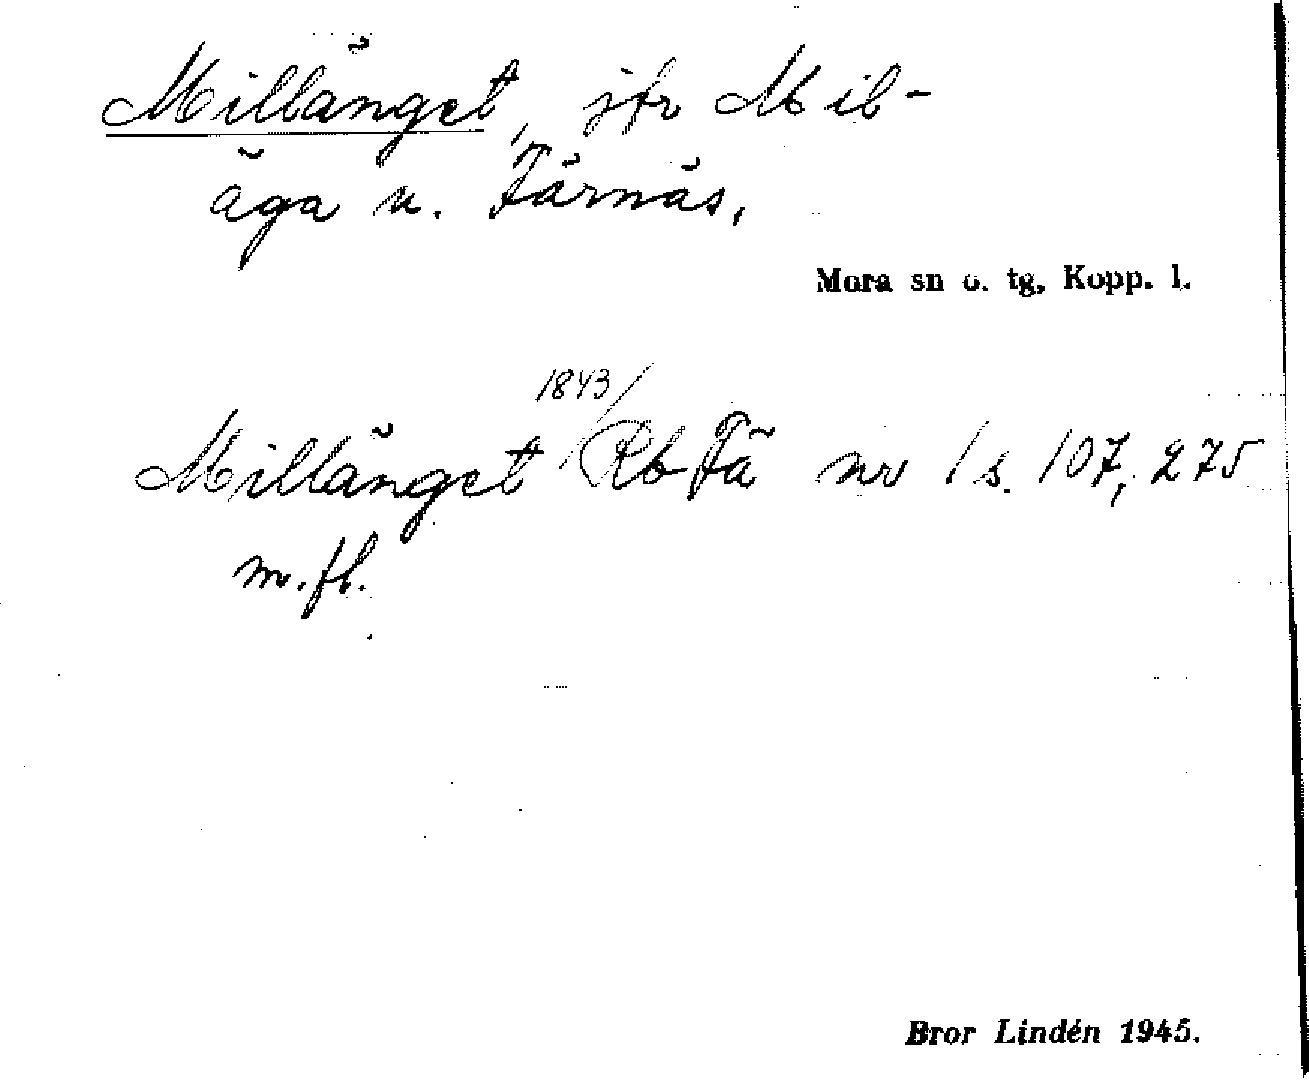 Millänget, jfr Mil-
äga u. Färnäs,
Mora sn o. tg, Kopp. l.
1843/
Millänget Rb Fä nr 1 s. 107, 275
m.fl.
Bror Lindén 1945.